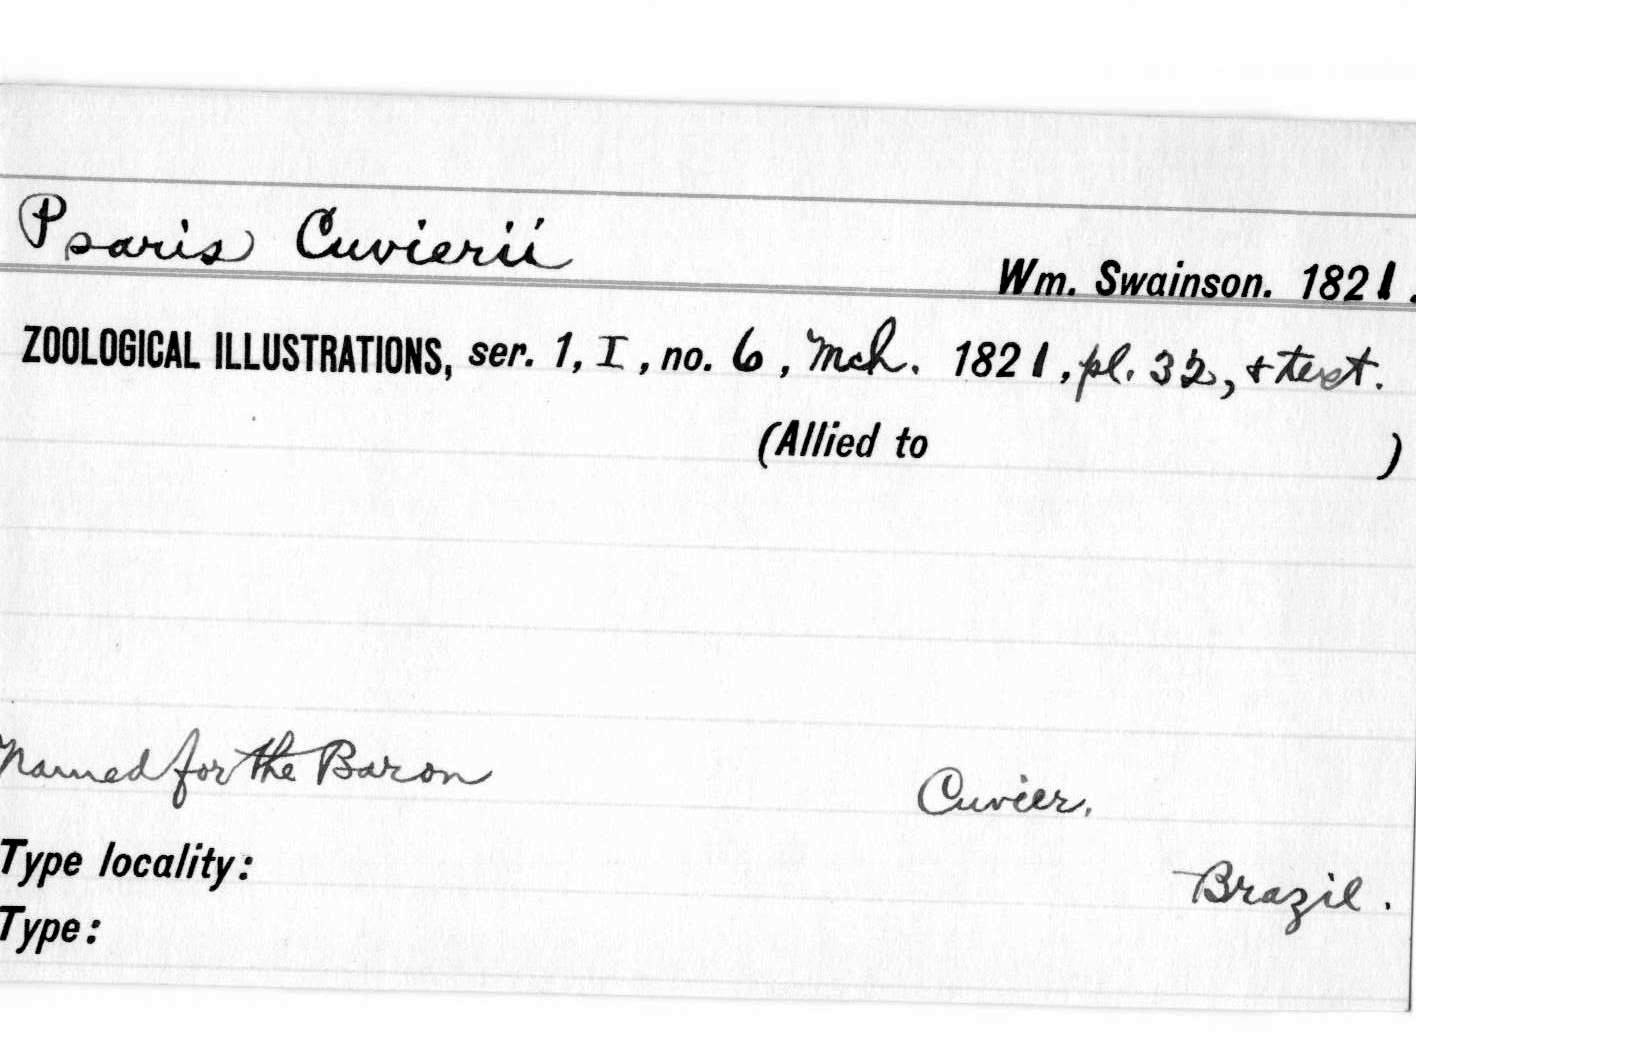 Psaris Cuvierii
Wm. Swainson. 1821.
ZOOLOGICAL ILLUSTRATIONS, ser. 1, I, no. 6, Mch. 1821, pl. 32, & text.
(Allied to )
Named for the Baron Cuvier.
Type locality: Brazil.
Type: